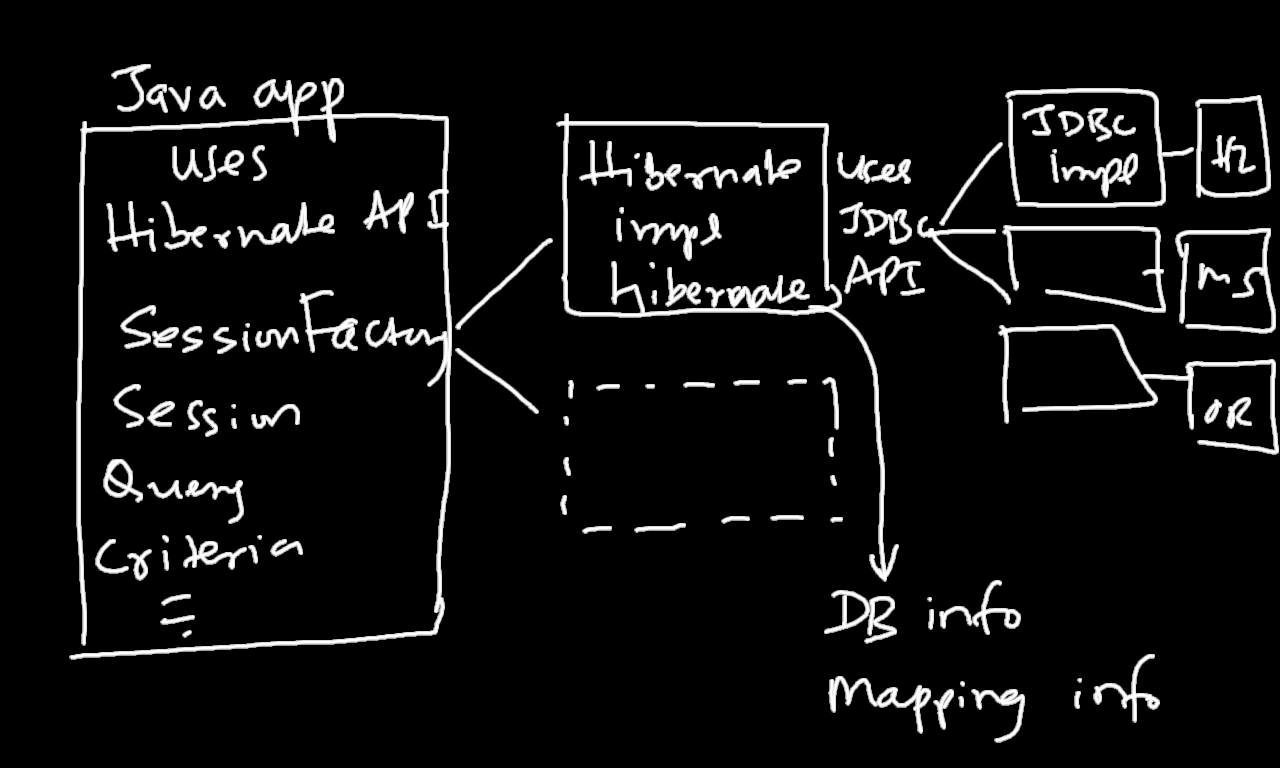 Java app
uses
Hibernate API
SessionFactory
Session
Query
Criteria
Hibernate
impl
hibernate
uses
JDBC
API
JDBC
impl
H2
MS
OR
DB info
Mapping info